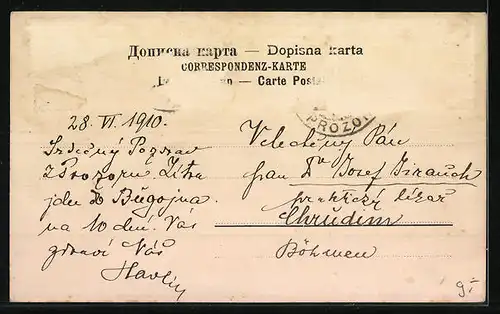 Дописна карта — Dopisna karta
CORRESPONDENZ-KARTE
— Carte Posta
PROZO
28. VI. 1910.
Srdečný Pozdrav
z Prozoru. Zítra
jdu do Bugojna
na 10 dní. Vás
zdraví Váš
Havlín
Velectěný Pán
pan Dr Josef
praktický lékař
Chrudim
Böhmen
9.-